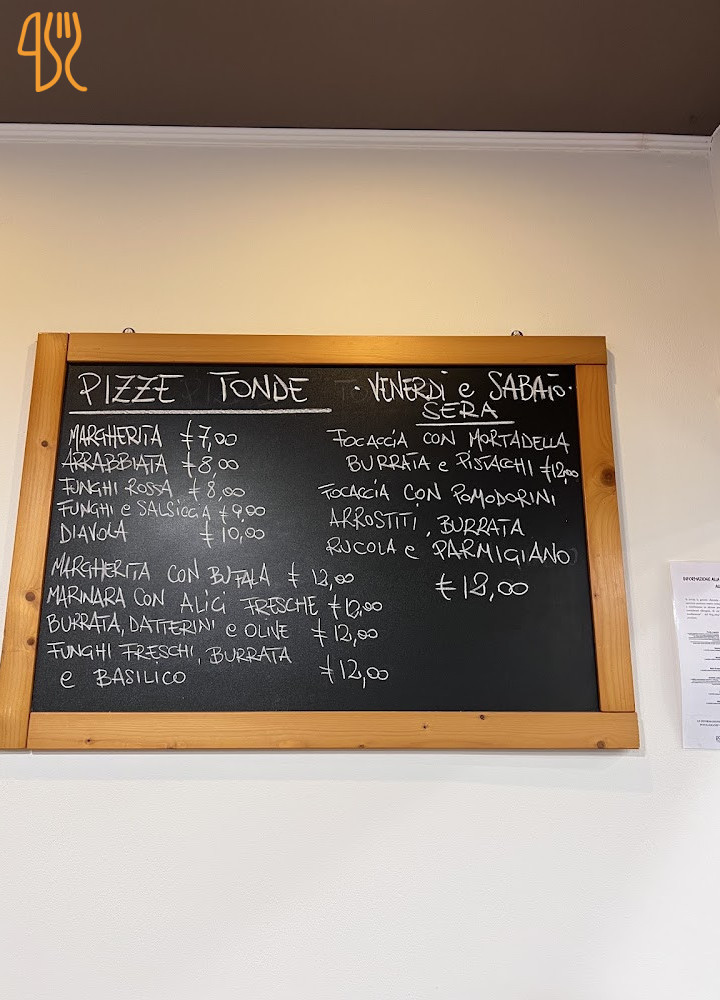 PIZZE TONDE
MARGHERITA €7,00
ARRABBIATA €8,00
FUNGHI ROSSA €8,00
FUNGHI e SALSICCIA €9,00
DIAVOLA €10,00
MARGHERITA CON BUFALA € 12,00
MARINARA CON ALICI FRESCHE €12,00
BURRATA, DATTERINI e OLIVE €12,00
FUNGHI FRESCHI, BURRATA
e BASILICO €12,00
· VENERDÌ e SABATO ·
SERA
FOCACCIA CON MORTADELLA
BURRATA e PISTACCHI €12,00
FOCACCIA CON POMODORINI
ARROSTITI, BURRATA
RUCOLA e PARMIGIANO
€12,00